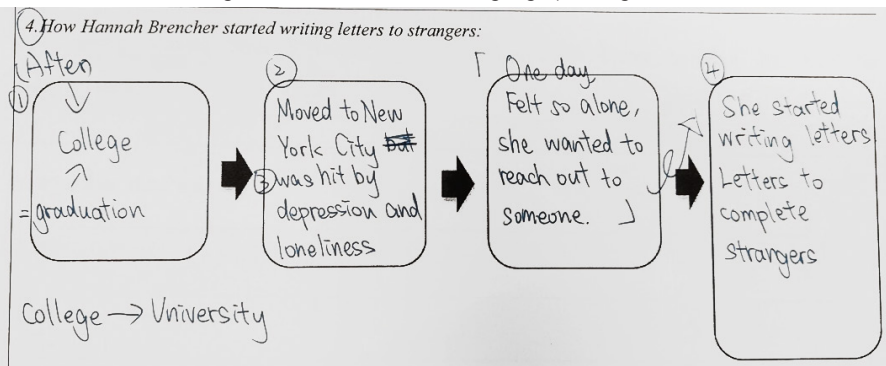 4. How Hannah Brencher started writing letters to strangers:
After
①
College
= graduation
②
Moved to New
York City but
③ was hit by
depression and
loneliness
「 One day
Felt so alone,
she wanted to
reach out to
someone. 」
④
She started
writing letters
Letters to
complete
strangers
College → University